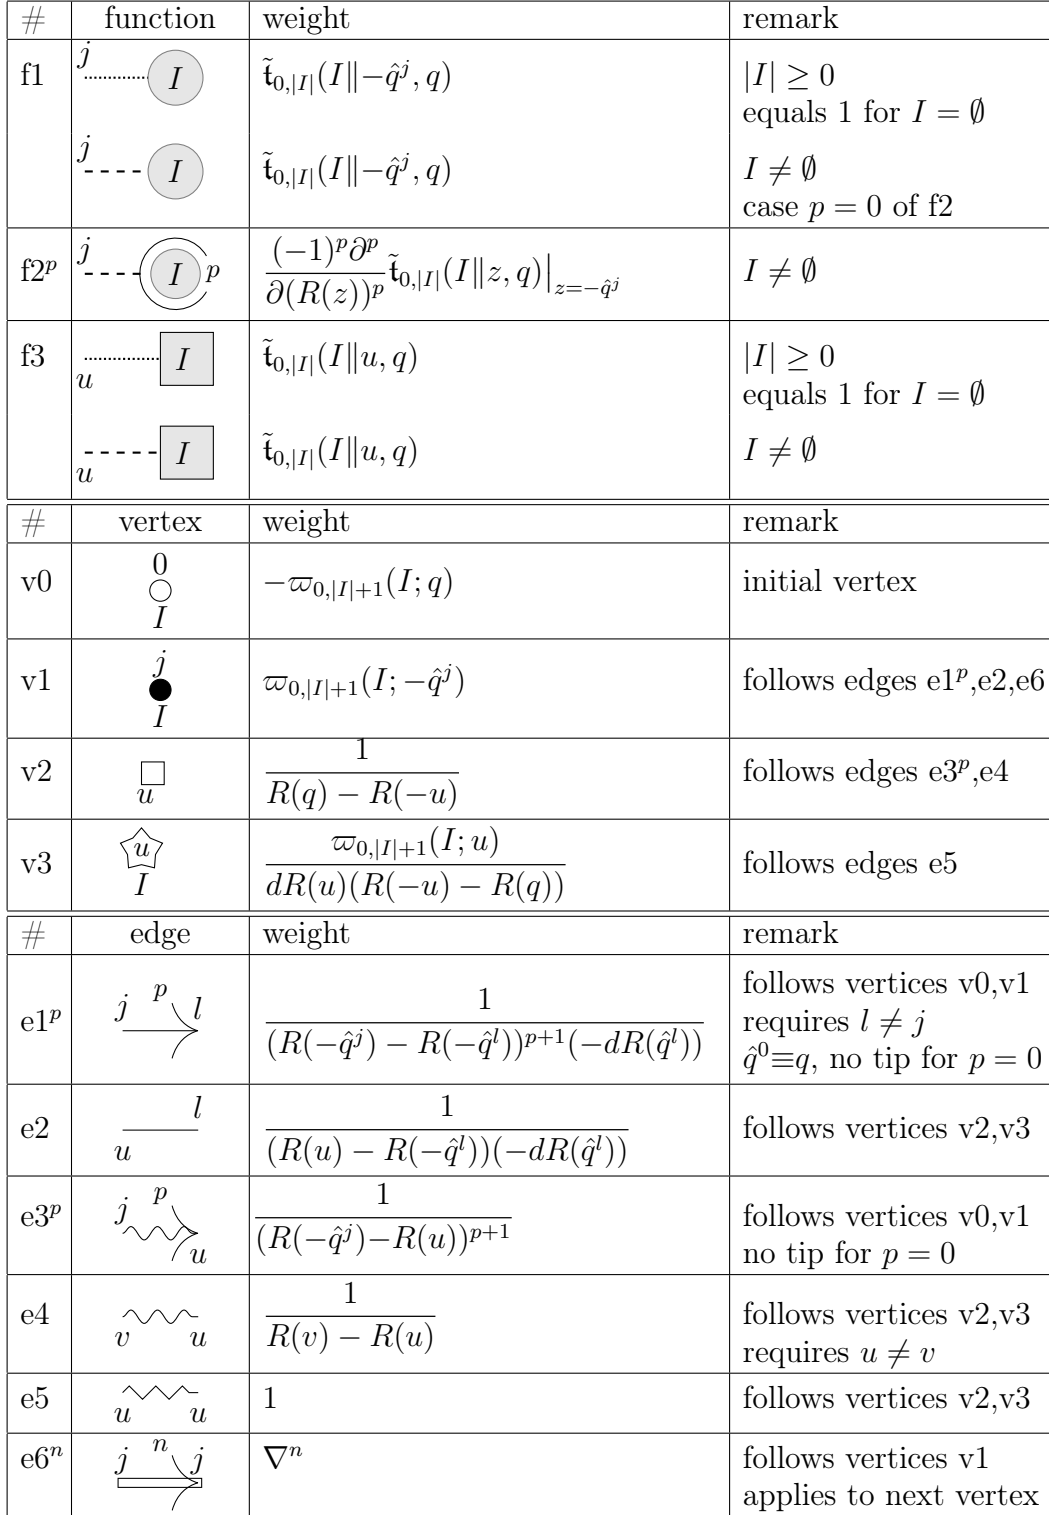 # function weight remark
f1 j I $\tilde{\mathfrak{t}}_{0,|I|}(I\|{-\hat{q}^j},q)$ $|I| \geq 0$
equals 1 for $I = \emptyset$
j I $\tilde{\mathfrak{t}}_{0,|I|}(I\|{-\hat{q}^j},q)$ $I \neq \emptyset$
case $p = 0$ of f2
f2$^p$ j I p $\frac{(-1)^p \partial^p}{\partial(R(z))^p} \tilde{\mathfrak{t}}_{0,|I|}(I\|z,q)\big|_{z=-\hat{q}^j}$ $I \neq \emptyset$
f3 u I $\tilde{\mathfrak{t}}_{0,|I|}(I\|u,q)$ $|I| \geq 0$
equals 1 for $I = \emptyset$
u I $\tilde{\mathfrak{t}}_{0,|I|}(I\|u,q)$ $I \neq \emptyset$
# vertex weight remark
v0 0 I $-\varpi_{0,|I|+1}(I;q)$ initial vertex
v1 j I $\varpi_{0,|I|+1}(I;-\hat{q}^j)$ follows edges e1$^p$,e2,e6
v2 u $\frac{1}{R(q)-R(-u)}$ follows edges e3$^p$,e4
v3 u I $\frac{\varpi_{0,|I|+1}(I;u)}{dR(u)(R(-u)-R(q))}$ follows edges e5
# edge weight remark
e1$^p$ j p l $\frac{1}{(R(-\hat{q}^j)-R(-\hat{q}^l))^{p+1}(-dR(\hat{q}^l))}$ follows vertices v0,v1
requires $l \neq j$
$\hat{q}^0 \equiv q$, no tip for $p = 0$
e2 u l $\frac{1}{(R(u)-R(-\hat{q}^l))(-dR(\hat{q}^l))}$ follows vertices v2,v3
e3$^p$ j p u $\frac{1}{(R(-\hat{q}^j)-R(u))^{p+1}}$ follows vertices v0,v1
no tip for $p = 0$
e4 v u $\frac{1}{R(v)-R(u)}$ follows vertices v2,v3
requires $u \neq v$
e5 u u 1 follows vertices v2,v3
e6$^n$ j n j $\nabla^n$ follows vertices v1
applies to next vertex